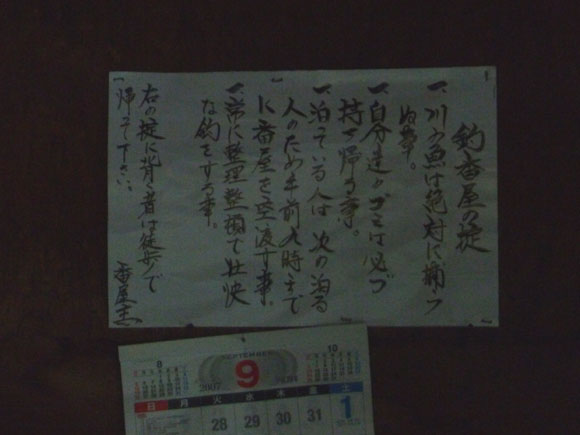 釣番屋の掟
一、川の魚は絶対に捕ら
ぬ事。
一、自分達のゴミは必ず
持ち帰る事。
一、泊っている人は次の泊る
人のため午前九時まで
に番屋を空渡す事。
一、常に整理整頓で壮快
な釣をする事。
右の掟に背く者は徒歩で
帰って下さい。
番屋主
8 SEPTEMBER 10
2007 9
日 月 火 水 木 金 土
28 29 30 31 1